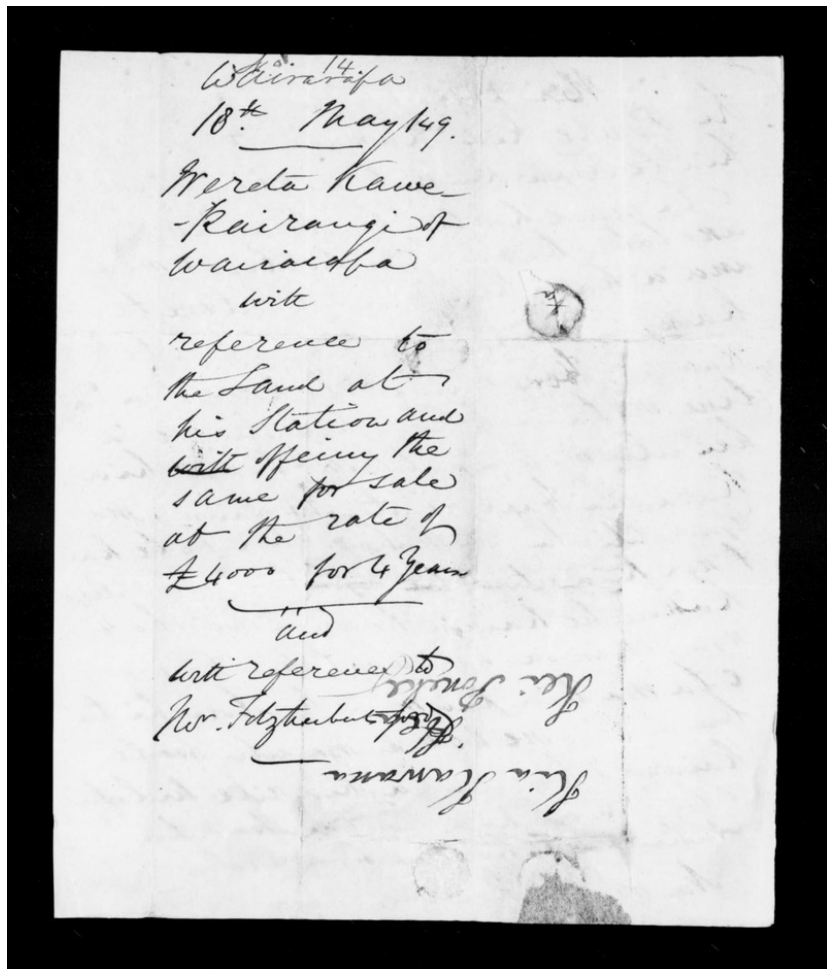 No 14
Wairarapa
18th May /49.
Wereta Kawe-
-Kairangi of
Wairarapa
with
reference to
the Land at
his Station and
with offering the
same for sale
at the rate of
£4000 for 4 Years
and
with reference to
Mr. Fitzherbert
Kia Kawana
Kei Poneke